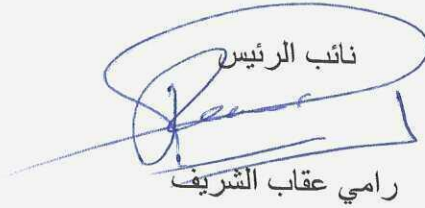 نائب الرئيس
رامي عقاب الشريف